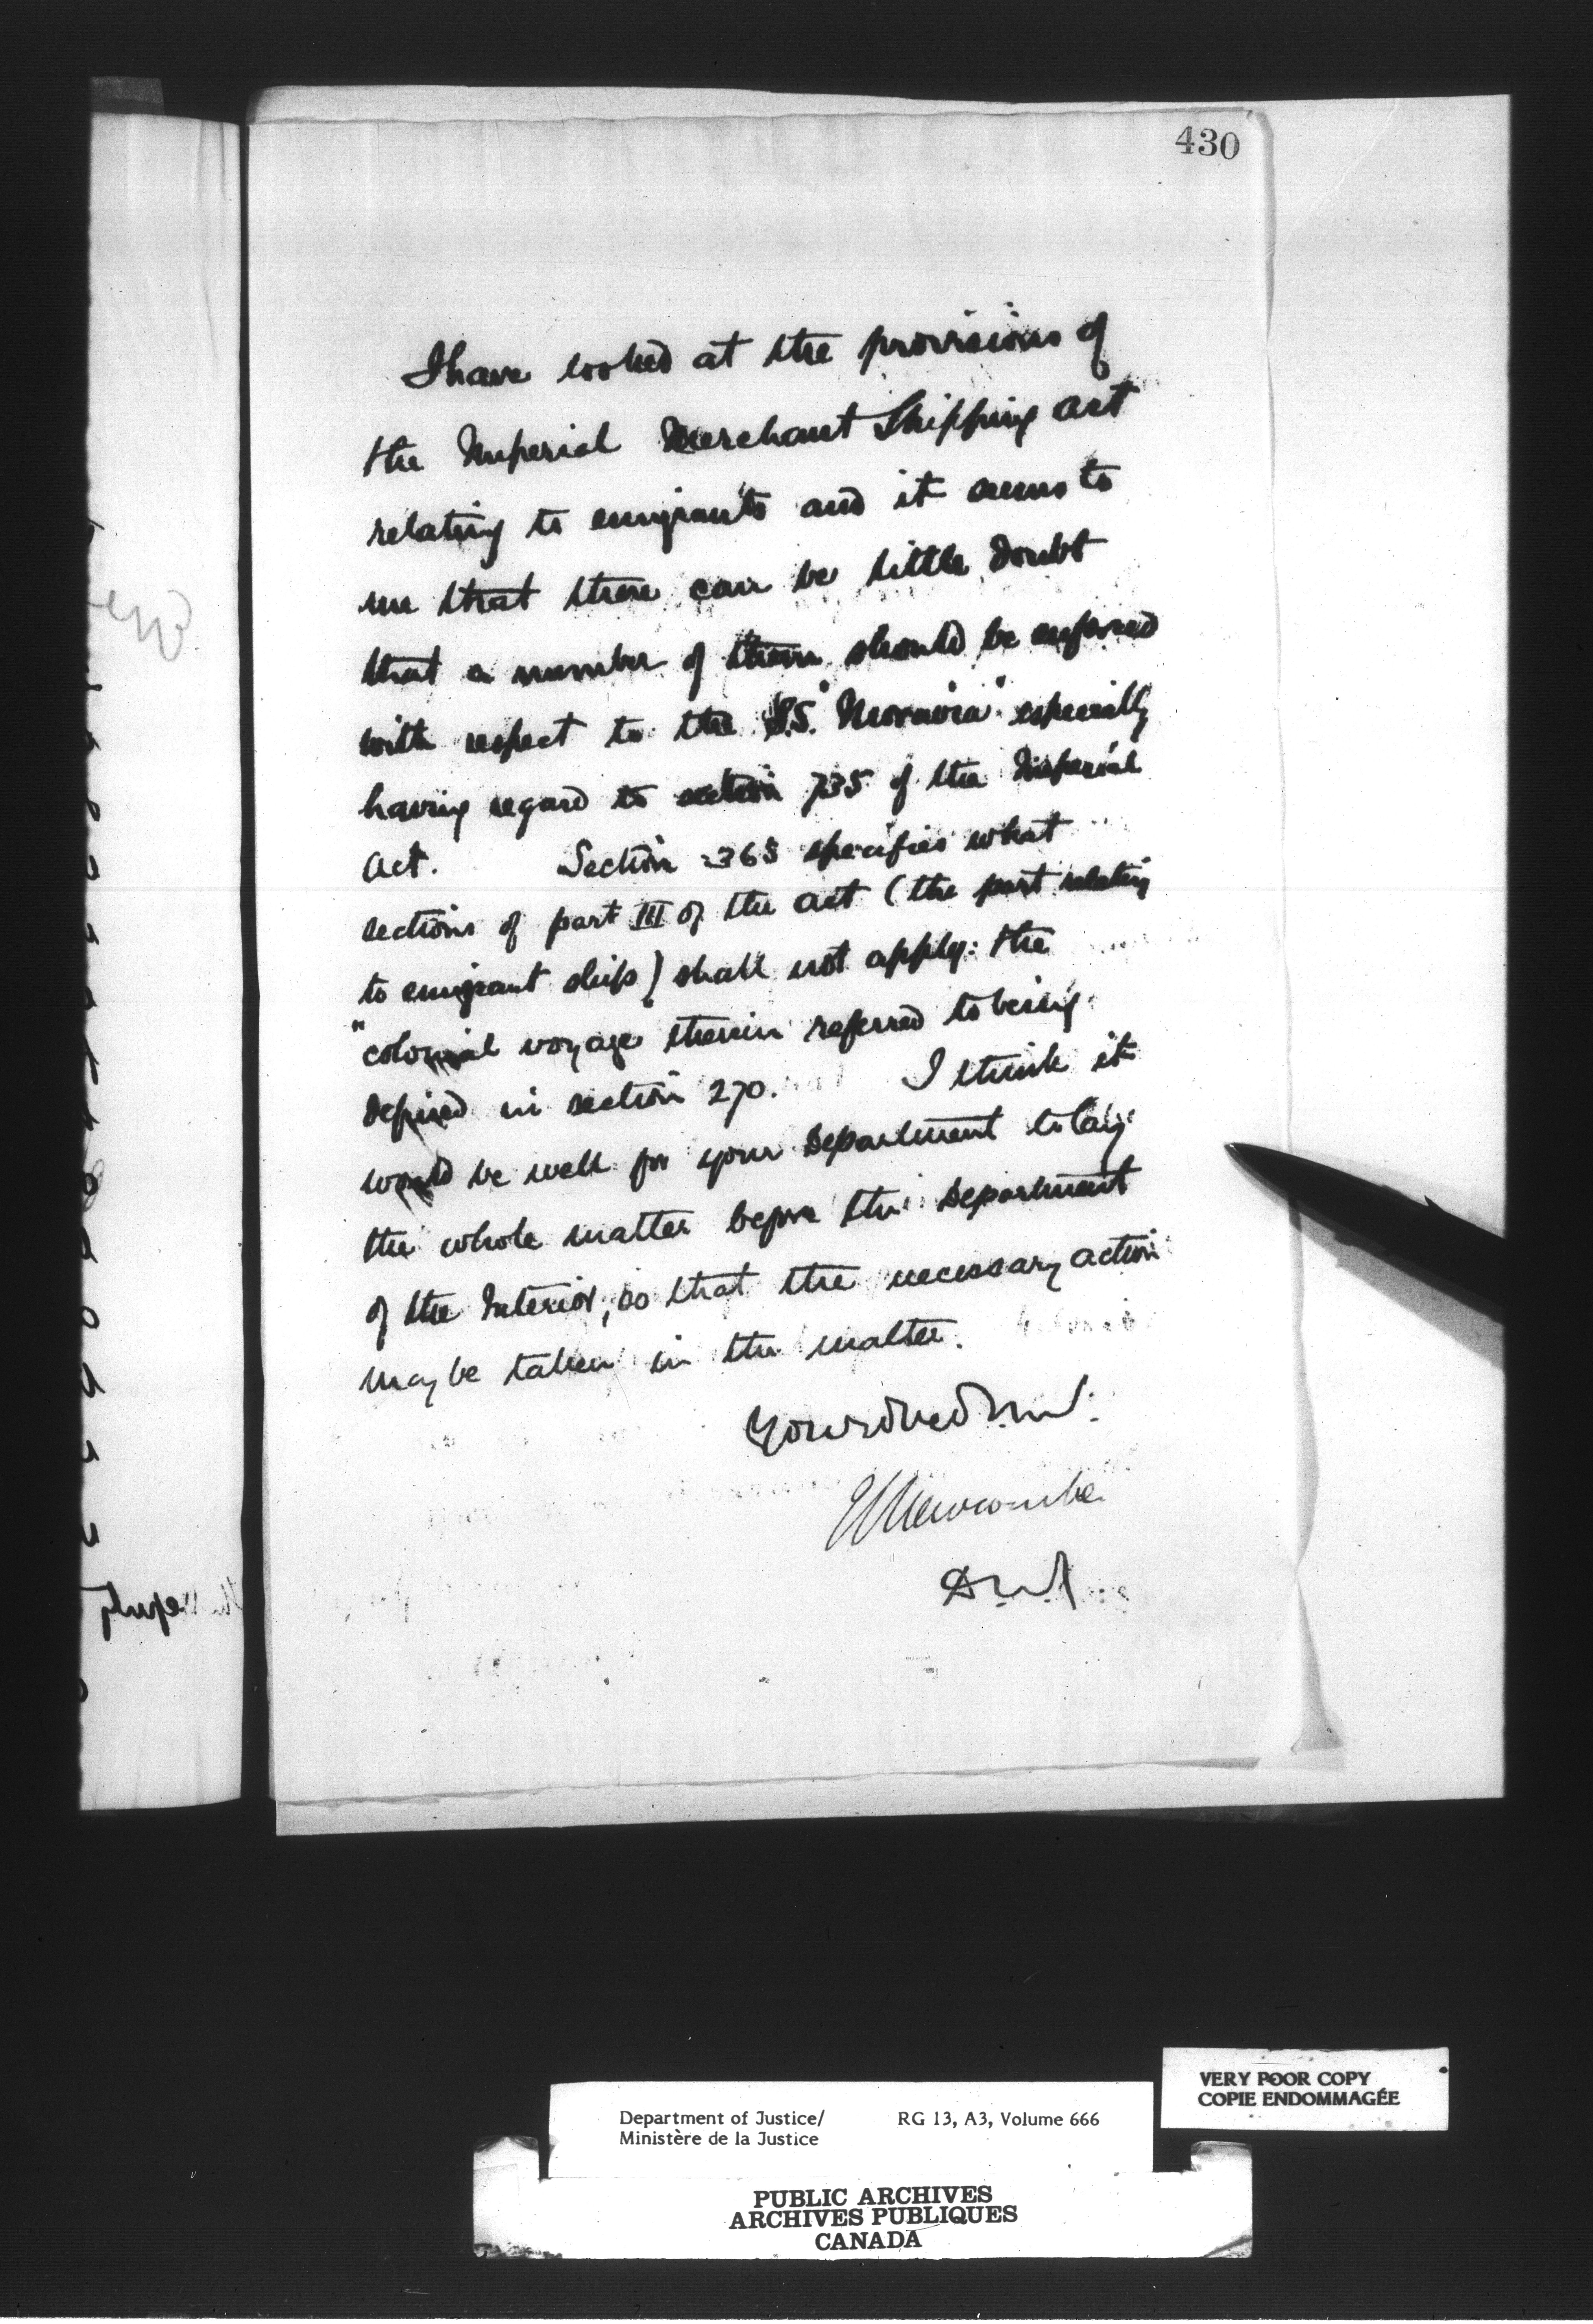 430
I have looked at the provisions of
the Imperial Merchant Shipping Act
relating to emigrants and it seems to
me that there can be little doubt
that a number of them should be enforced
with respect to the S.S. "Moravia" especially
having regard to section 735 of the Imperial
Act. Section 365 specifies what
sections of part III of the Act (the part relating
to emigrant ships) shall not apply: the
"colonial voyage" therein referred to being
defined in section 270. I think it
would be well for your Department to lay
the whole matter before the Department
of the Interior, so that the necessary action
may be taken in the matter.
Newcombe
Deputy
Department of Justice/ RG 13, A3, Volume 666
Ministère de la Justice
VERY POOR COPY
COPIE ENDOMMAGÉE
PUBLIC ARCHIVES
ARCHIVES PUBLIQUES
CANADA